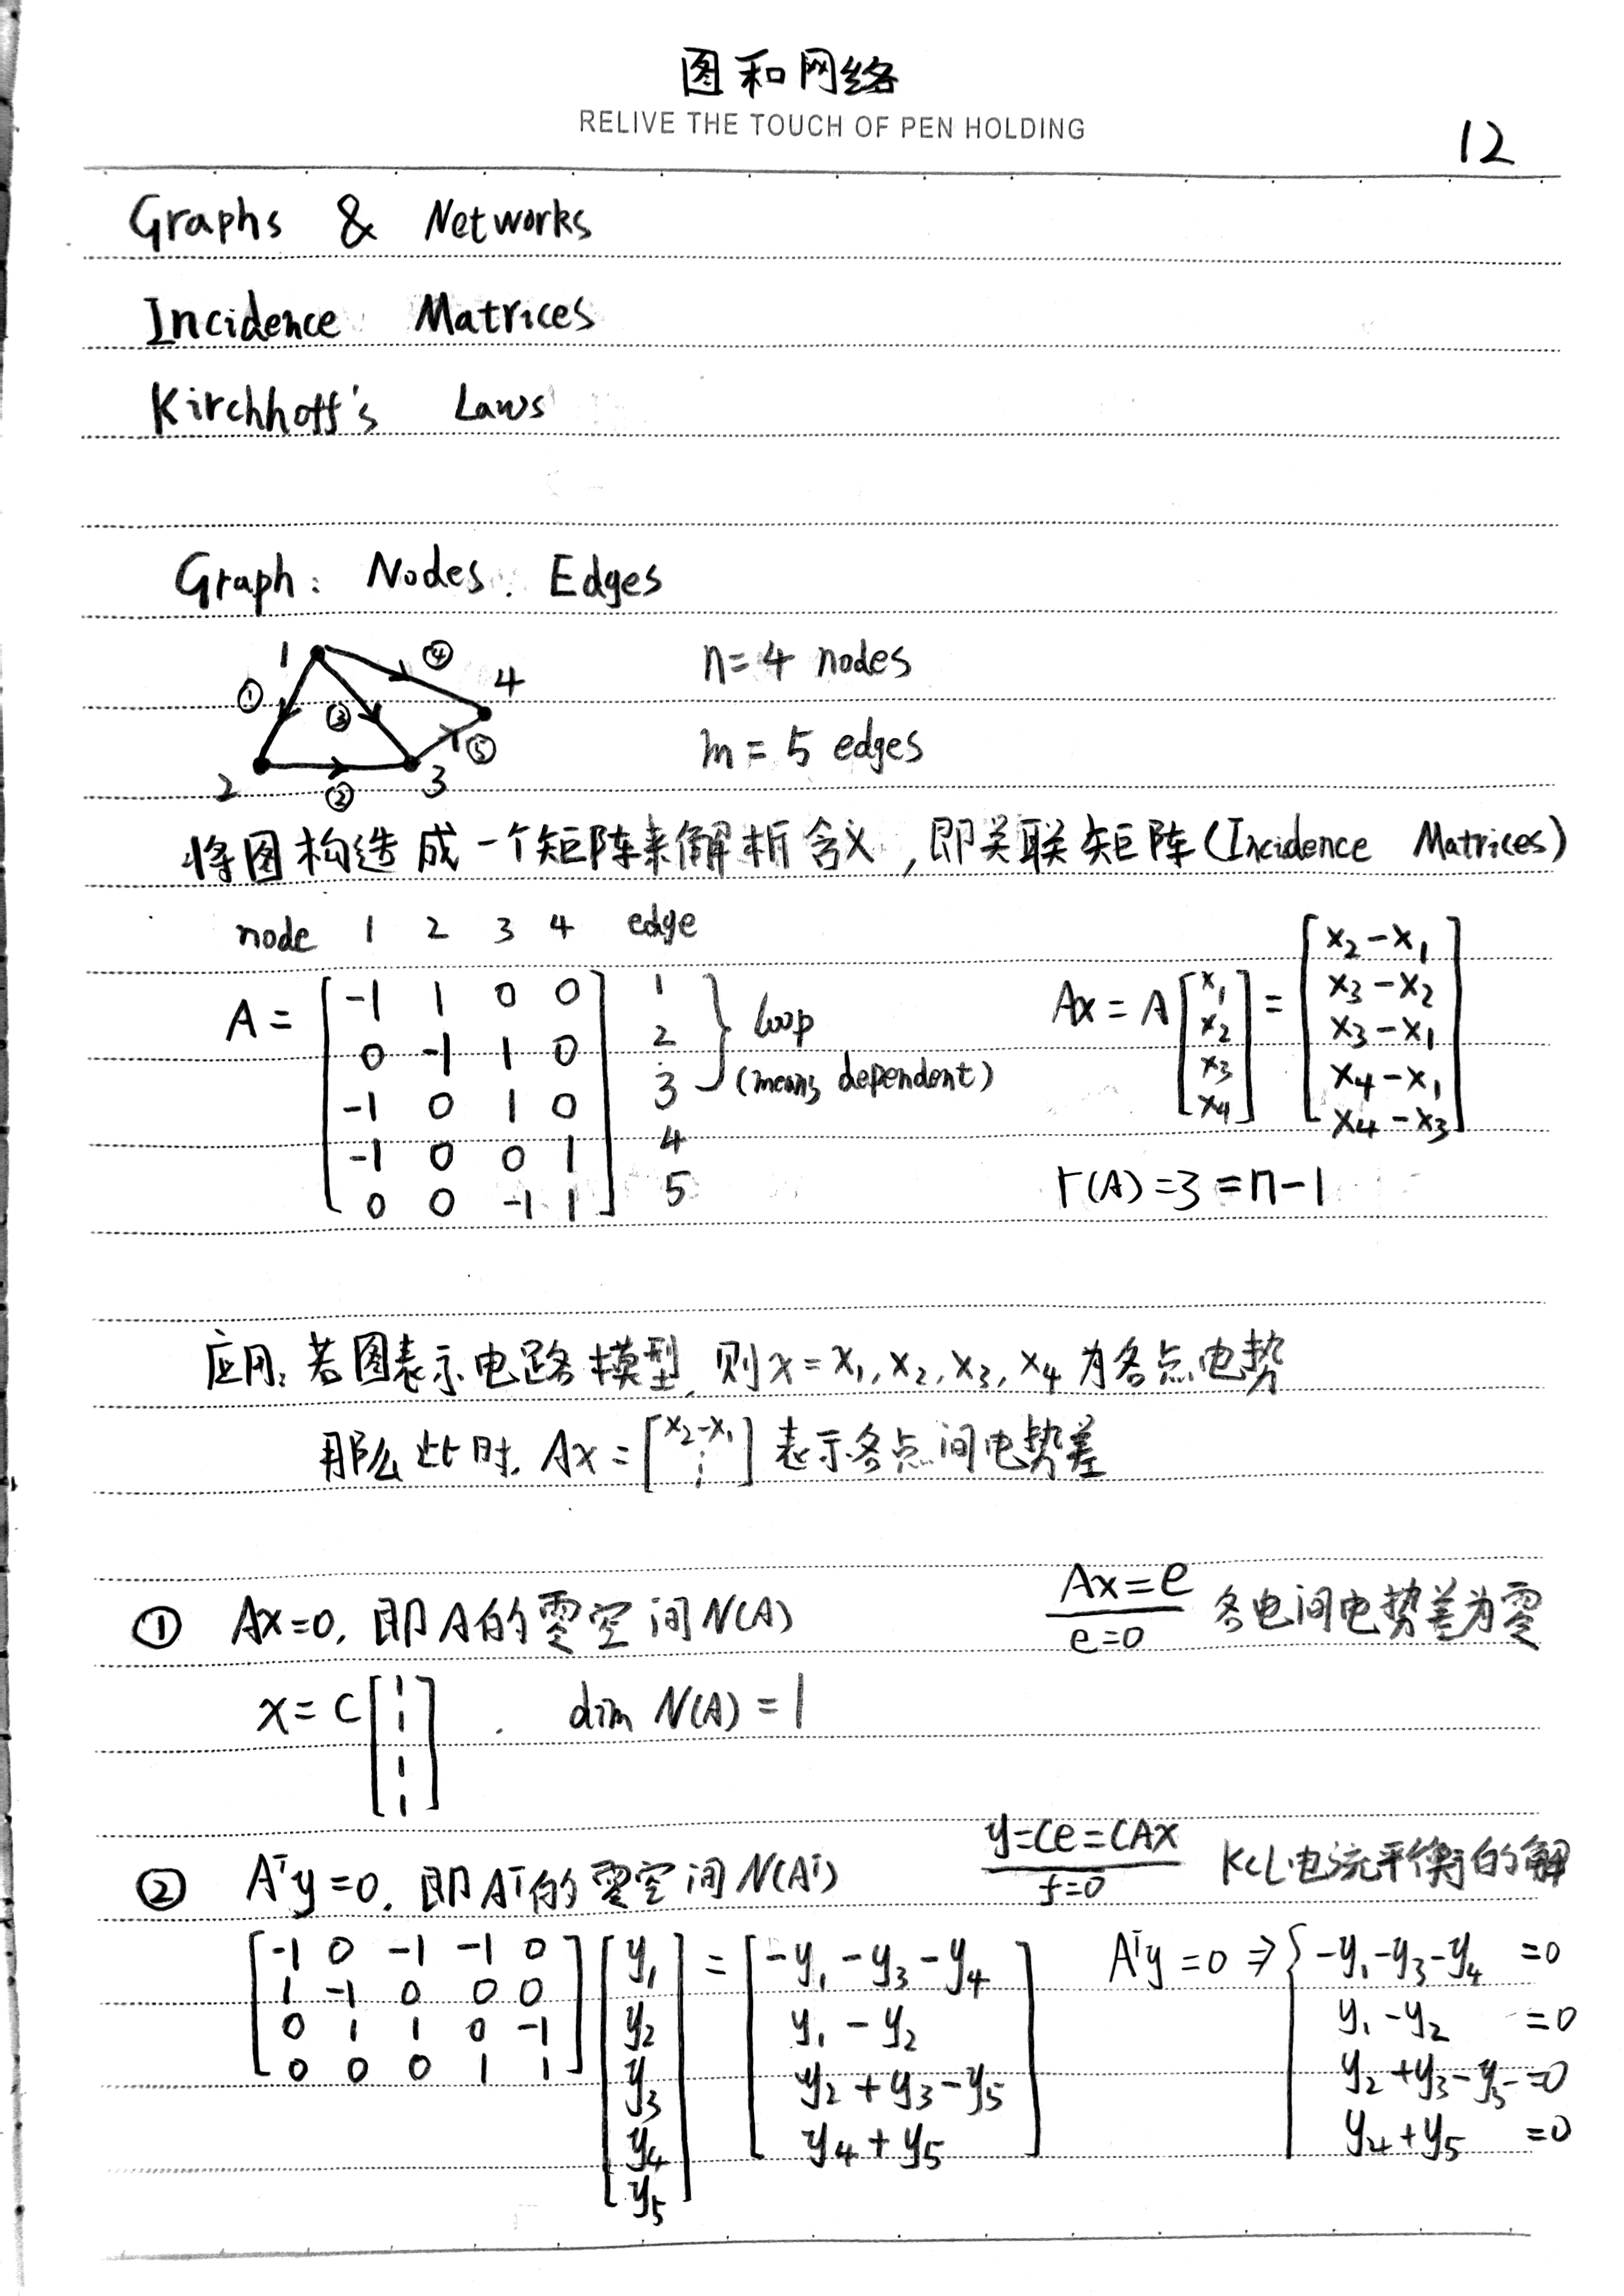 图和网络
RELIVE THE TOUCH OF PEN HOLDING
12
Graphs & Networks
Incidence Matrices
Kirchhoff's Laws
Graph: Nodes. Edges
1 ④ 4
① ③ ⑤
2 ② 3
n=4 nodes
m=5 edges
将图构造成一个矩阵来解析含义,即关联矩阵(Incidence Matrices)
node 1 2 3 4 edge
A = [ -1 1 0 0 ] 1
0 -1 1 0 2
-1 0 1 0 3
-1 0 0 1 4
0 0 -1 1 5
} loop
(means dependent)
Ax = A [x₁ x₂ x₃ x₄] = [x₂-x₁ x₃-x₂ x₃-x₁ x₄-x₁ x₄-x₃]
r(A)=3=n-1
应用:若图表示电路模型,则x=x₁,x₂,x₃,x₄为各点电势
那么此时,Ax=[x₂-x₁ ⋮]表示各点间电势差
① Ax=0,即A的零空间N(A)
Ax=e
e=0
各电间电势差为零
x=C[1 1 1 1]. dim N(A)=1
② Aᵀy=0,即Aᵀ的零空间N(Aᵀ)
y=Ce=CAx
f=0
KCL电流平衡的解
[ -1 0 -1 -1 0
1 -1 0 0 0
0 1 1 0 -1
0 0 0 1 1 ]
[y₁ y₂ y₃ y₄ y₅]
= [ -y₁-y₃-y₄
y₁-y₂
y₂+y₃-y₅
y₄+y₅ ]
Aᵀy=0 ⇒ { -y₁-y₃-y₄ =0
y₁-y₂ =0
y₂+y₃-y₅=0
y₄+y₅ =0